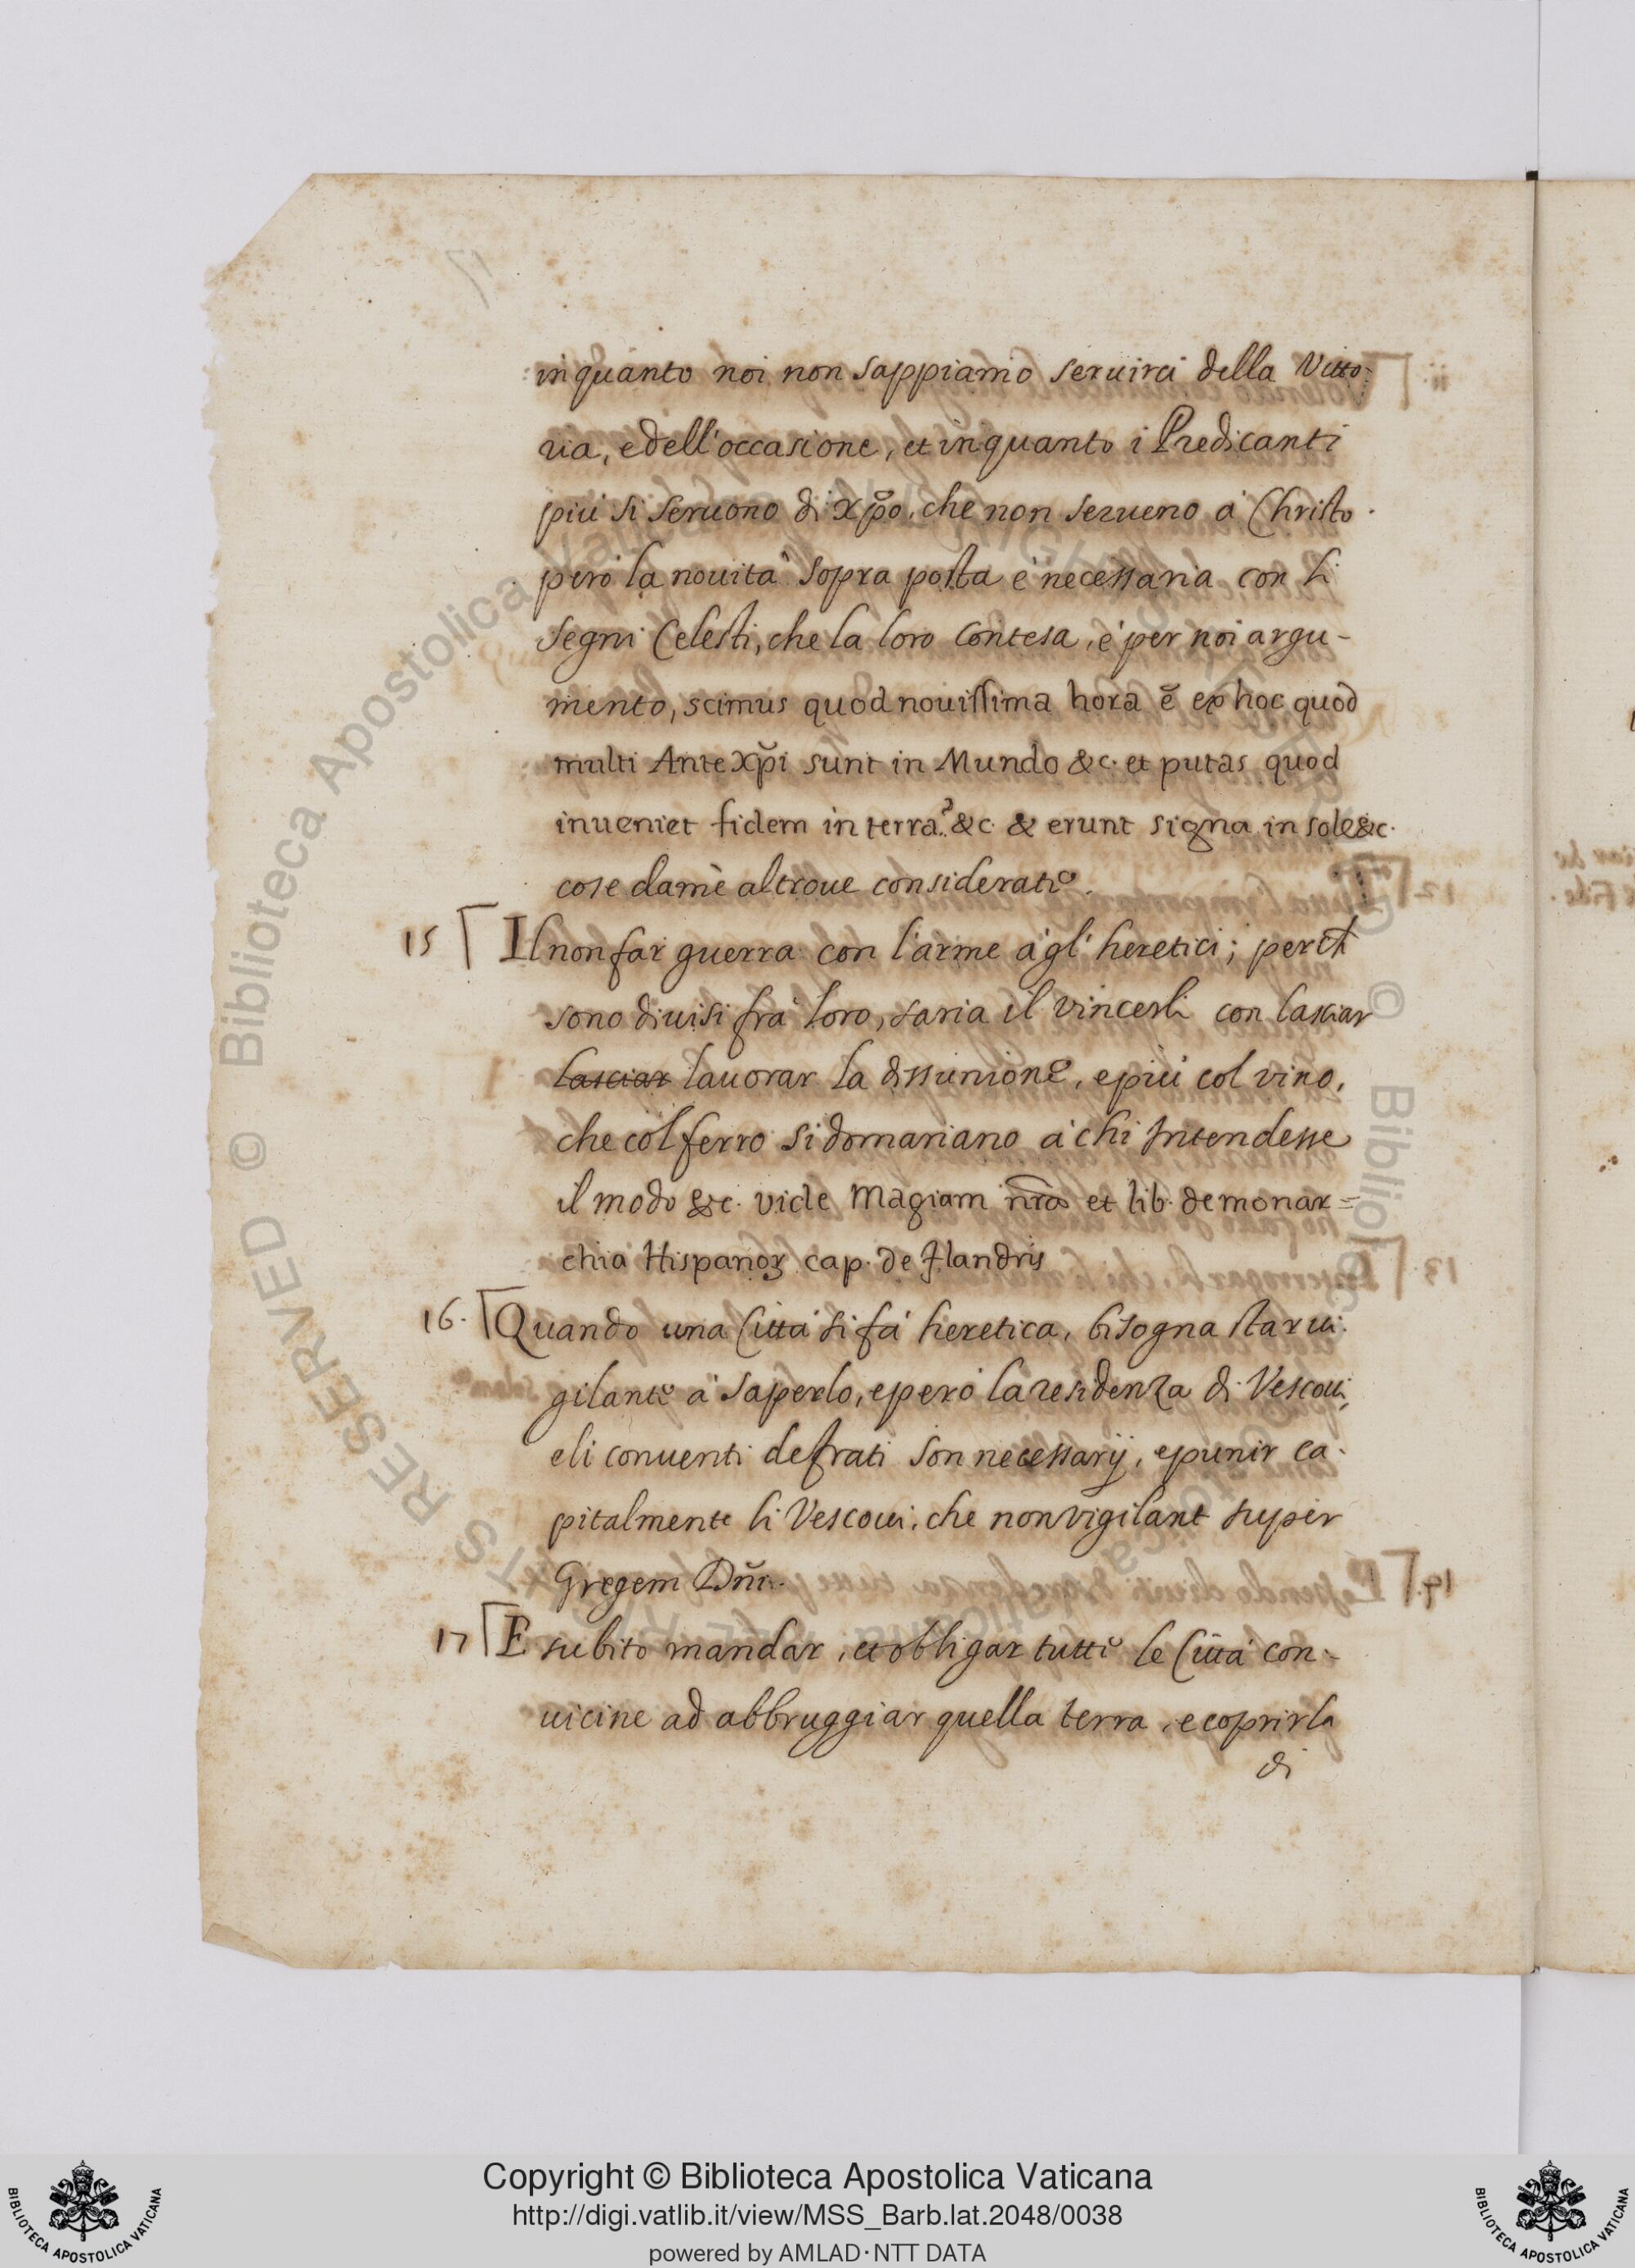 inquanto noi non sappiamo seruirci della Vitto-
ria, e dell'occasione, et inquanto i Predicanti
più si seruono di xp̃o, che non serueno à Christo.
però la nouità sopra posta è necessaria con li
segni Celesti, che la loro contesa, è per noi argu-
mento, scimus quod nouissima hora ẽ ex hoc quod
multi Ante Xp̃i sunt in Mundo &c. et putas quod
inueniet fidem in terra? &c. & erunt signa in sole &c.
cose da mè altroue considerate.
15 Il non far guerra con l'arme à gl'heretici; perch
sono diuisi frà loro, saria il vincerli con lasciar
lasciar lauorar la dissunione, e più col vino,
che col ferro si domariano à chi intendesse
il modo &c. vide Magiam nr̃a et lib. de monar=
chia Hispanoꝝ cap. de flandris
16. Quando una Città si fà heretica, bisogna star ui-
gilante à saperlo, e però la residenza di Vescoui,
e li conuenti de frati son necessarij, e punir ca-
pitalmente li Vescoui, che non vigilant super
Gregem Dñi.
17 E subito mandar, et obligar tutte le Città con-
uicine ad abbruggiar quella terra, e coprirla
di
Copyright © Biblioteca Apostolica Vaticana
http://digi.vatlib.it/view/MSS_Barb.lat.2048/0038
powered by AMLAD·NTT DATA
BIBLIOTECA APOSTOLICA VATICANA
BIBLIOTECA APOSTOLICA VATICANA